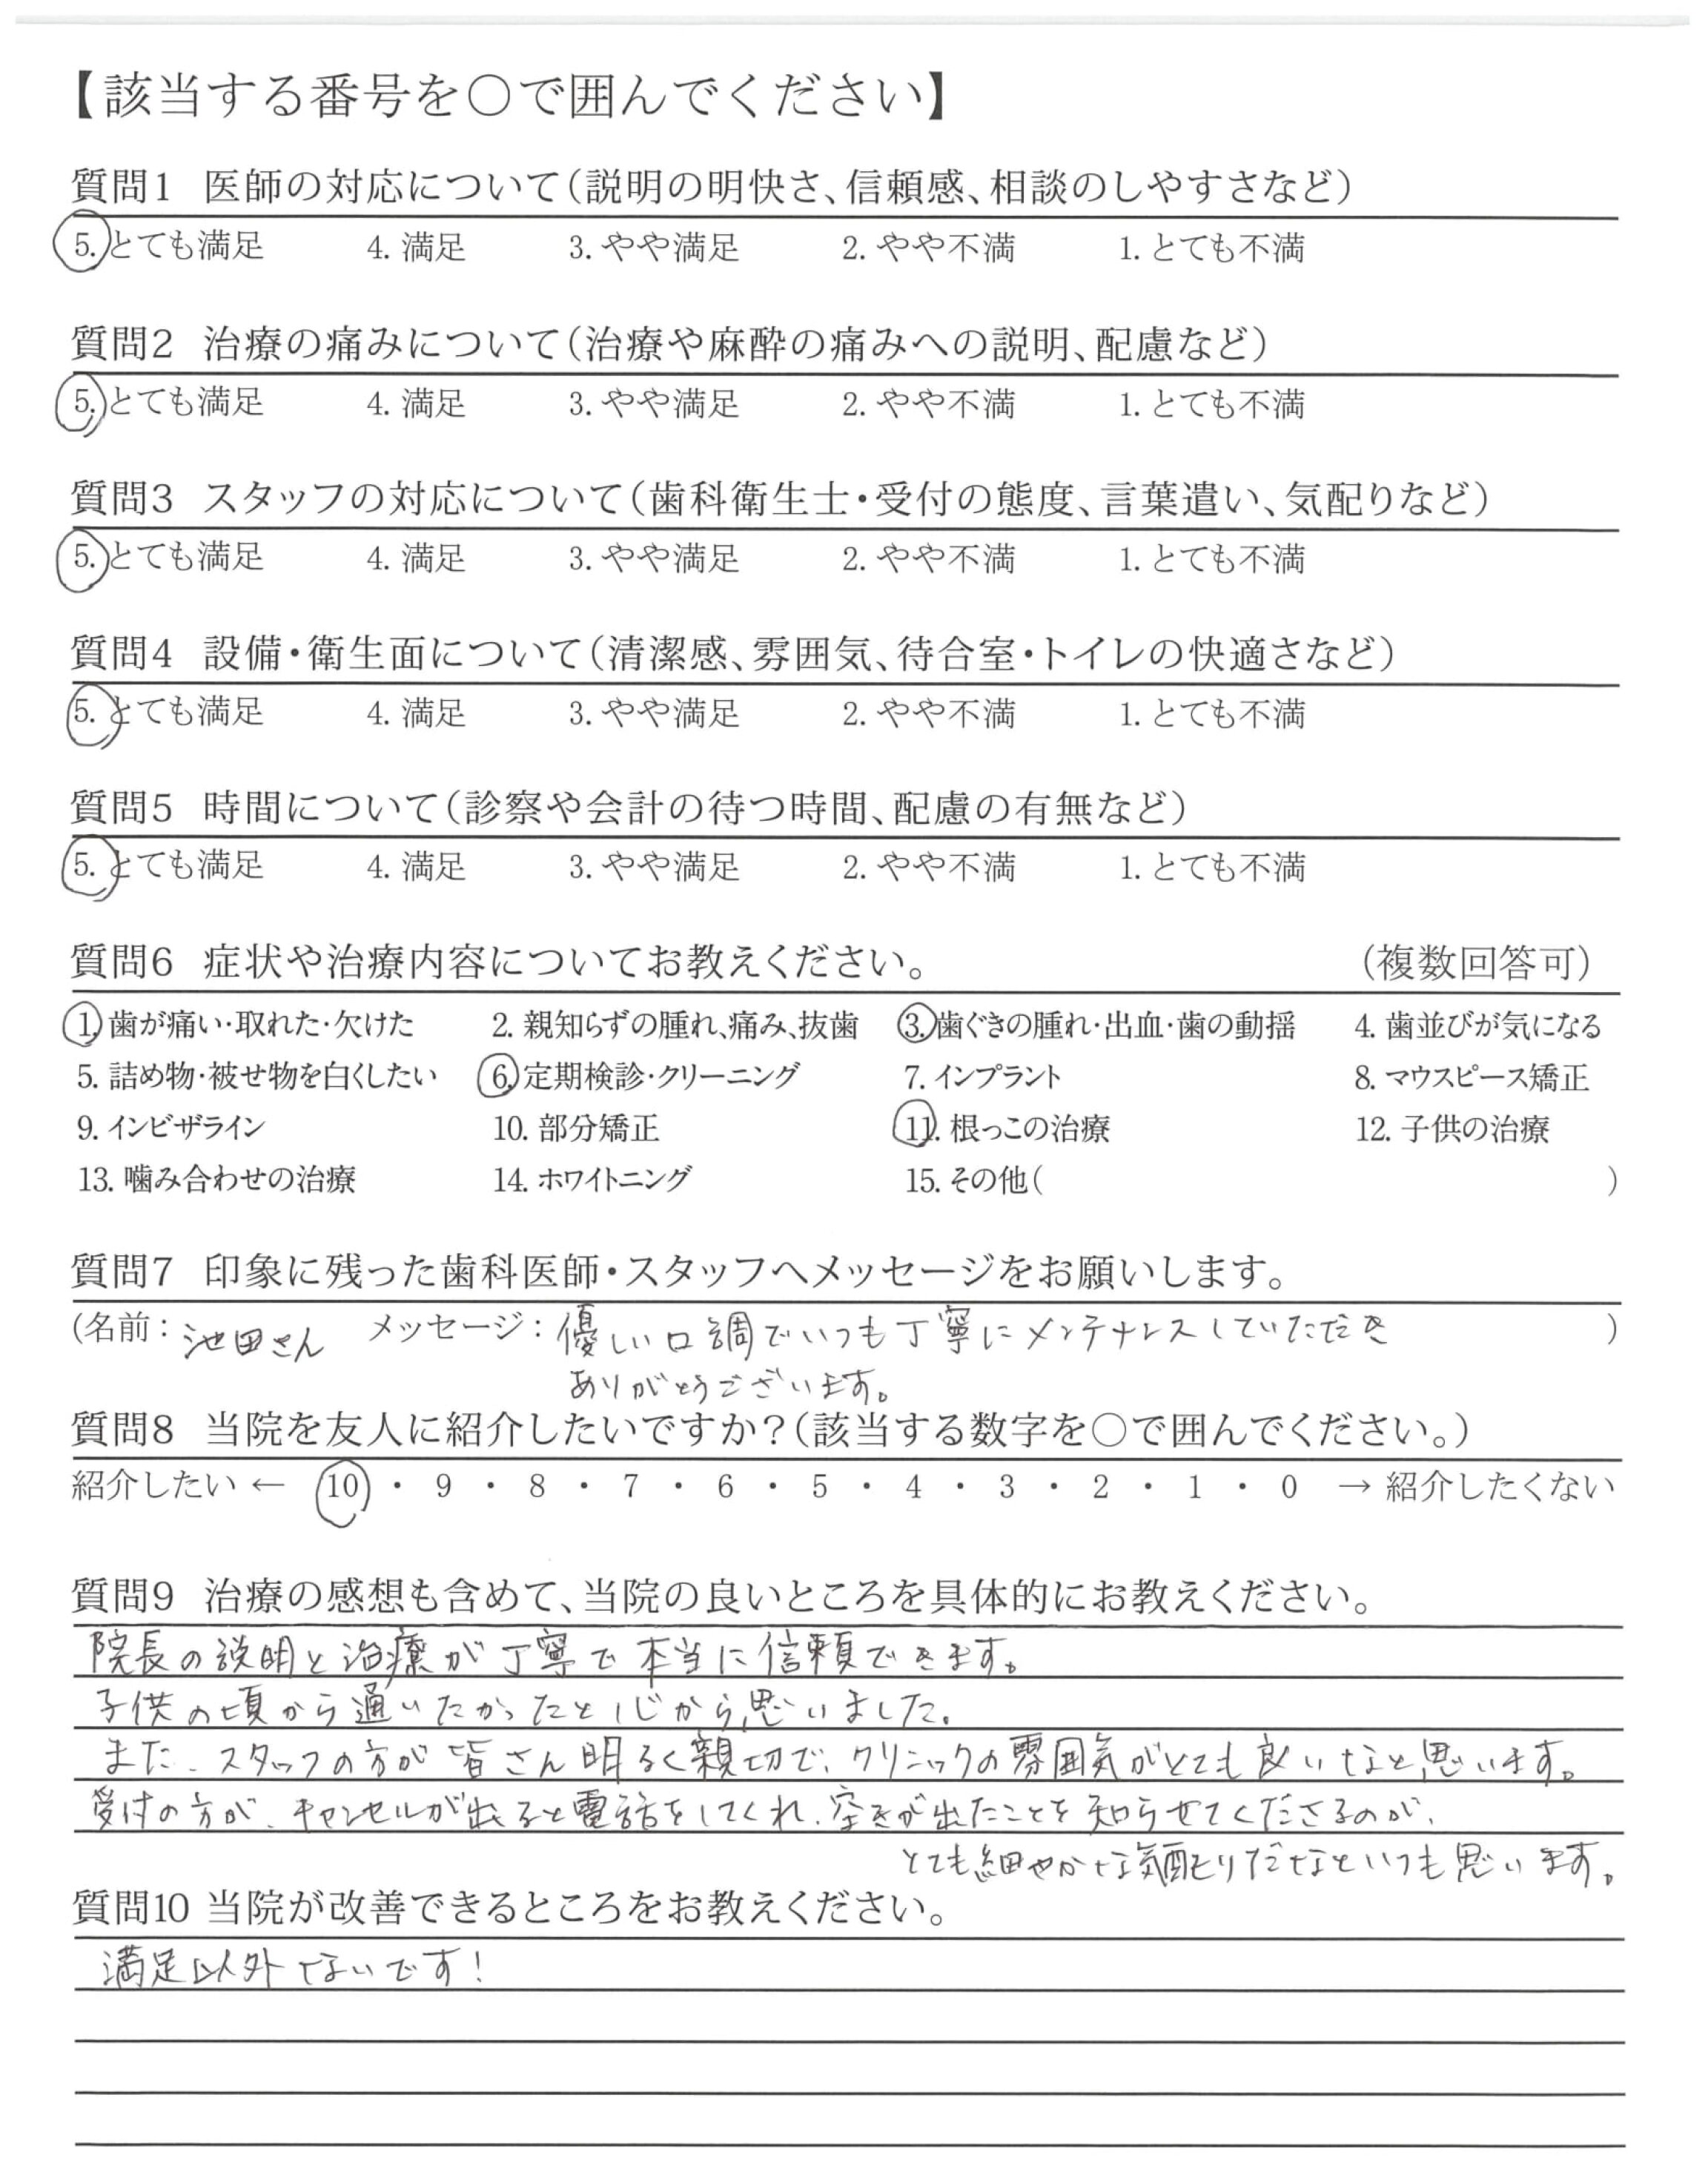 【該当する番号を○で囲んでください】
質問1 医師の対応について（説明の明快さ、信頼感、相談のしやすさなど）
5. とても満足 4. 満足 3. やや満足 2. やや不満 1. とても不満
質問2 治療の痛みについて（治療や麻酔の痛みへの説明、配慮など）
5. とても満足 4. 満足 3. やや満足 2. やや不満 1. とても不満
質問3 スタッフの対応について（歯科衛生士・受付の態度、言葉遣い、気配りなど）
5. とても満足 4. 満足 3. やや満足 2. やや不満 1. とても不満
質問4 設備・衛生面について（清潔感、雰囲気、待合室・トイレの快適さなど）
5. とても満足 4. 満足 3. やや満足 2. やや不満 1. とても不満
質問5 時間について（診察や会計の待つ時間、配慮の有無など）
5. とても満足 4. 満足 3. やや満足 2. やや不満 1. とても不満
質問6 症状や治療内容についてお教えください。 （複数回答可）
1. 歯が痛い・取れた・欠けた 2. 親知らずの腫れ、痛み、抜歯 3. 歯ぐきの腫れ・出血・歯の動揺 4. 歯並びが気になる
5. 詰め物・被せ物を白くしたい 6. 定期検診・クリーニング 7. インプラント 8. マウスピース矯正
9. インビザライン 10. 部分矯正 11. 根っこの治療 12. 子供の治療
13. 噛み合わせの治療 14. ホワイトニング 15. その他（ ）
質問7 印象に残った歯科医師・スタッフへメッセージをお願いします。
（名前：池田さん メッセージ：優しい口調でいつも丁寧にメンテナンスしていただき ）
ありがとうございます。
質問8 当院を友人に紹介したいですか？（該当する数字を○で囲んでください。）
紹介したい ← 10 ・ 9 ・ 8 ・ 7 ・ 6 ・ 5 ・ 4 ・ 3 ・ 2 ・ 1 ・ 0 → 紹介したくない
質問9 治療の感想も含めて、当院の良いところを具体的にお教えください。
院長の説明と治療が丁寧で本当に信頼できます。
子供の頃から通いたかったと心から思いました。
また、スタッフの方が皆さん明るく親切で、クリニックの雰囲気がとても良いなと思います。
受付の方が、キャンセルが出ると電話をしてくれ、空きが出たことを知らせてくださるのが、
とても細やかな気配りだなといつも思います。
質問10 当院が改善できるところをお教えください。
満足以外ないです！